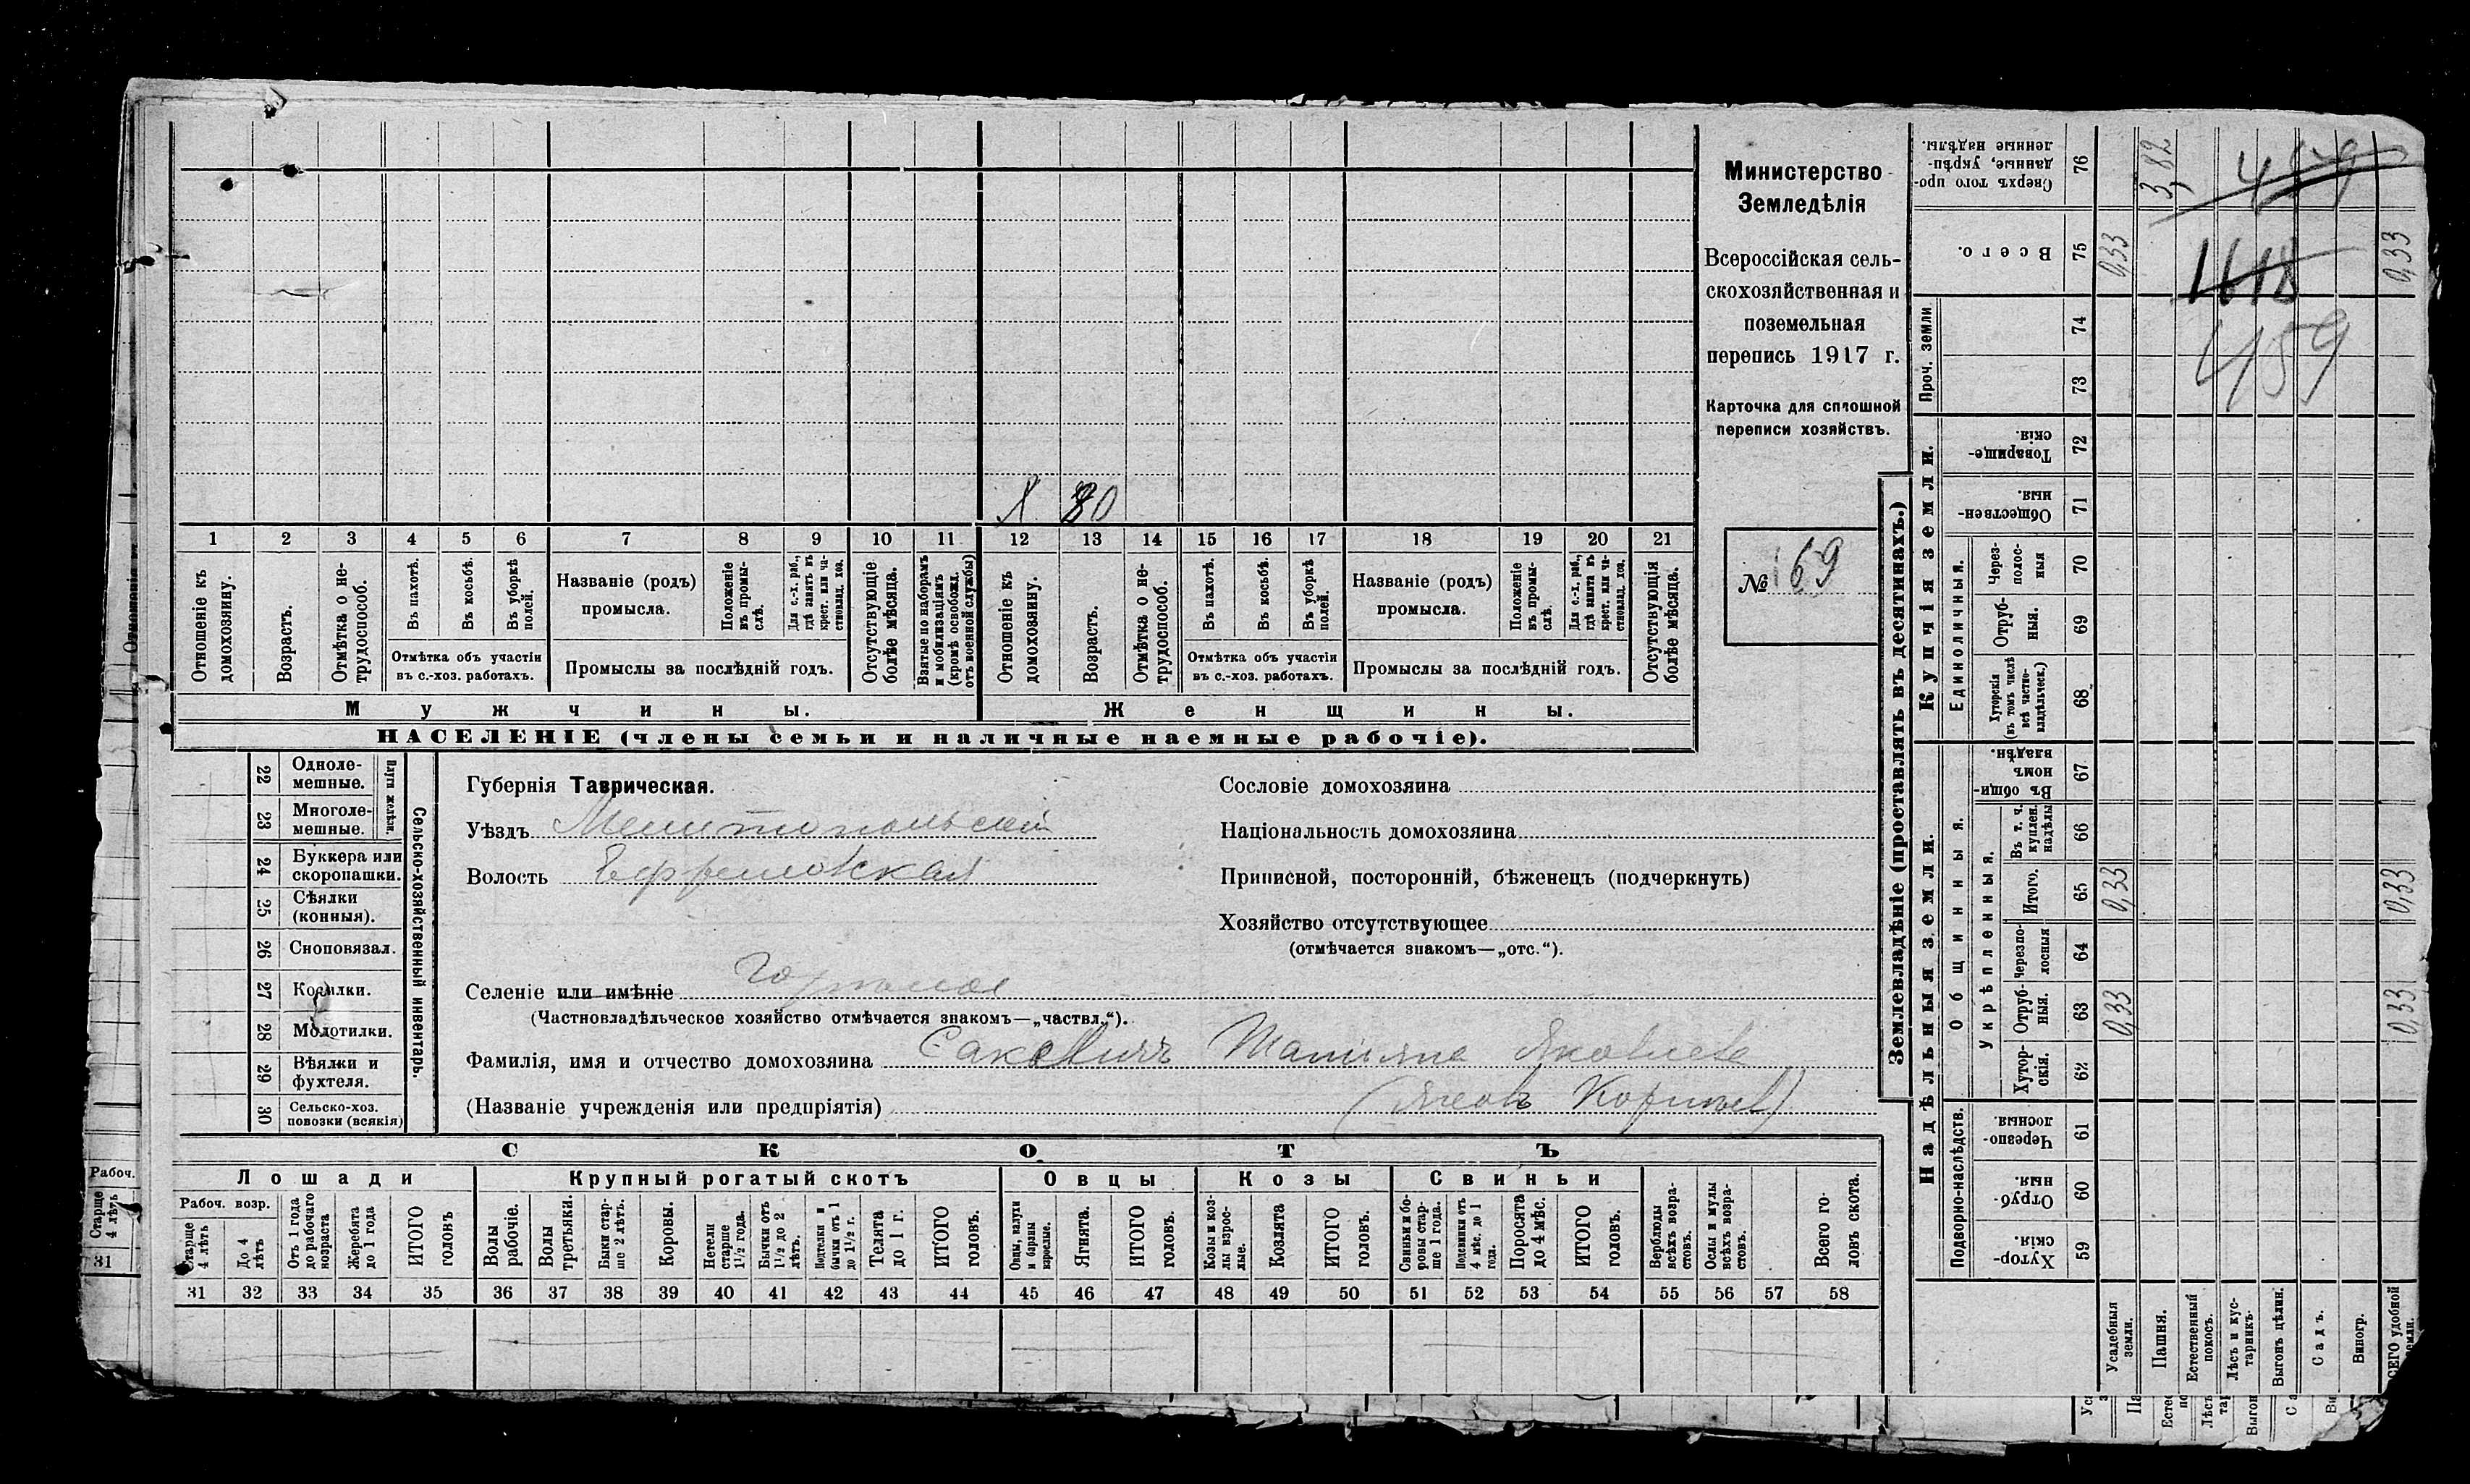 Министерство
Земледѣлія
Всероссійская сель-
скохозяйственная и
поземельная
перепись 1917 г.
Карточка для сплошной
переписи хозяйствъ.
№ 169
Х 80
1 2 3 4 5 6 7 8 9 10 11 12 13 14 15 16 17 18 19 20 21
Отношеніе къ домохозяину.
Возрастъ.
Отмѣтка о не-трудоспособ.
Въ пахотѣ.
Въ косьбѣ.
Въ уборкѣ полей.
Отмѣтка объ участіи
въ с.-хоз. работахъ.
Названіе (родъ)
промысла.
Положеніе въ промы-слѣ.
Для с.-х. раб., гдѣ занятъ въ крест. или ча-стновлад. хоз.
Промыслы за послѣдній годъ.
Отсутствующіе болѣе мѣсяца.
Взятые по наборамъ и мобилизаціямъ (кромѣ освобожд. отъ военной службы)
Отношеніе къ домохозяину.
Возрастъ.
Отмѣтка о не-трудоспособ.
Въ пахотѣ.
Въ косьбѣ.
Въ уборкѣ полей.
Отмѣтка объ участіи
въ с.-хоз. работахъ.
Названіе (родъ)
промысла.
Положеніе въ промы-слѣ.
Для с.-х. раб., гдѣ занята въ крест. или ча-стновлад. хоз.
Промыслы за послѣдній годъ.
Отсутствующія болѣе мѣсяца.
Мужчины. Женщины.
НАСЕЛЕНІЕ (члены семьи и наличные наемные рабочіе).
22 Одноле-мешные.
23 Многоле-мешные.
Плуги желѣзн.
24 Буккера или скоропашки.
25 Сѣялки (конныя).
26 Сноповязал.
27 Косилки.
28 Молотилки.
29 Вѣялки и фухтеля.
30 Сельско-хоз. повозки (всякія)
Сельско-хозяйственный инвентарь.
Губернія Таврическая.
Уѣздъ Мелитопольскій
Волость Ефремовская
Селеніе или имѣніе
(Частновладѣльческое хозяйство отмѣчается знакомъ—„частвл.“).
Фамилія, имя и отчество домохозяина Саксевичъ Татіяна Яковлева
(Названіе учрежденія или предпріятія) (Яковъ Корнѣев)
Сословіе домохозяина
Національность домохозяина
Приписной, посторонній, бѣженецъ (подчеркнуть)
Хозяйство отсутствующее
(отмѣчается знакомъ—„отс.“).
СКОТЪ
Лошади
Рабоч. возр.
Старше 4 лѣтъ
До 4 лѣтъ
Отъ 1 года до рабочаго возраста
Жеребята до 1 года
ИТОГО головъ
Крупный рогатый скотъ
Волы рабочіе.
Волы третьяки.
Быки стар-ше 2 лѣтъ.
Коровы.
Нетели старше 1½ года.
Бычки отъ 1½ до 2 лѣтъ.
Подтелки и бычки отъ 1 до 1½ г.
Телята до 1 г.
ИТОГО головъ.
Овцы
Овцы, валухи и бараны взрослые.
Ягнята.
ИТОГО головъ.
Козы
Козы и коз-лы взрос-лые.
Козлята
ИТОГО головъ.
Свиньи
Свиньи и бо-ровы стар-ше 1 года.
Подсвинки отъ 4 мѣс. до 1 года.
Поросята до 4 мѣс.
ИТОГО головъ.
Верблюды всѣхъ возра-стовъ.
Ослы и мулы всѣхъ возра-стовъ.
Всего го-ловъ скота.
31 32 33 34 35 36 37 38 39 40 41 42 43 44 45 46 47 48 49 50 51 52 53 54 55 56 57 58
Землевладѣніе (проставлять въ десятинахъ.)
Надѣльныя земли. Купчія земли.
Проч. земли
Подворно-наслѣдств.
Общинныя.
Укрѣпленныя.
Единоличныя.
Сверхъ того про-данные, укрѣп-ленные надѣлы. 76 3,82
Всего. 75 0,33 0,33
74
73
Товарище-скія. 72
Обществен-ныя. 71
Через-полос-ныя 70
Отруб-ныя. 69
Хуторскія (въ томъ числѣ всѣ частно-владѣльческ.) 68
Въ общи-номъ владѣн. 67
Въ т. ч. куплен. надѣлы 66
Итого. 65 0,33 0,33
Черезпо-лосныя 64
Отруб-ныя. 63 0,33 0,33
Хутор-скія. 62
Черезпо-лосныя 61
Отруб-ныя. 60
Хутор-скія. 59
Усадебныя земли.
Пашня.
Естественный покосъ.
Лѣсъ и кус-тарникъ.
Выгонъ цѣлин.
Садъ.
Виногр.
ВСЕГО удобной земли.
459
1618
459
Рабоч.
Старше 4 лѣтъ
31